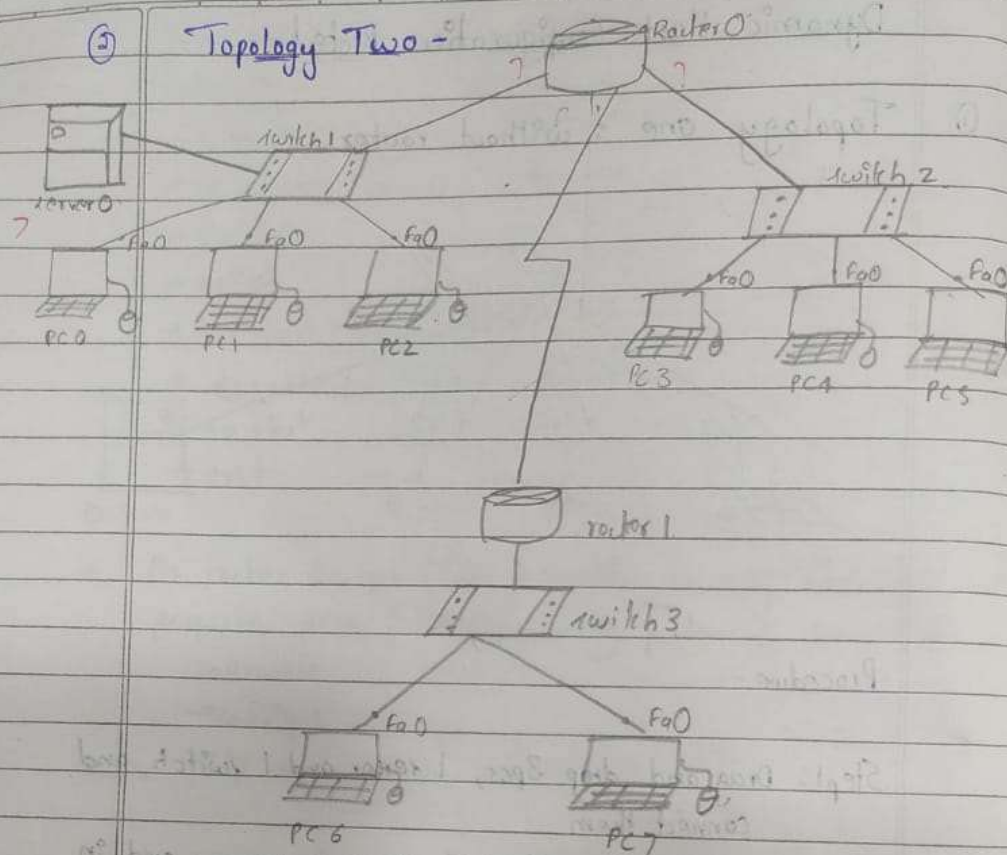 ② Topology Two -
Router0
?
?
?
switch 1
switch 2
server0
Fa0
Fa0
Fa0
PC0
PC1
PC2
Fa0
Fa0
Fa0
PC3
PC4
PC5
router 1
switch 3
Fa0
Fa0
PC6
PC7